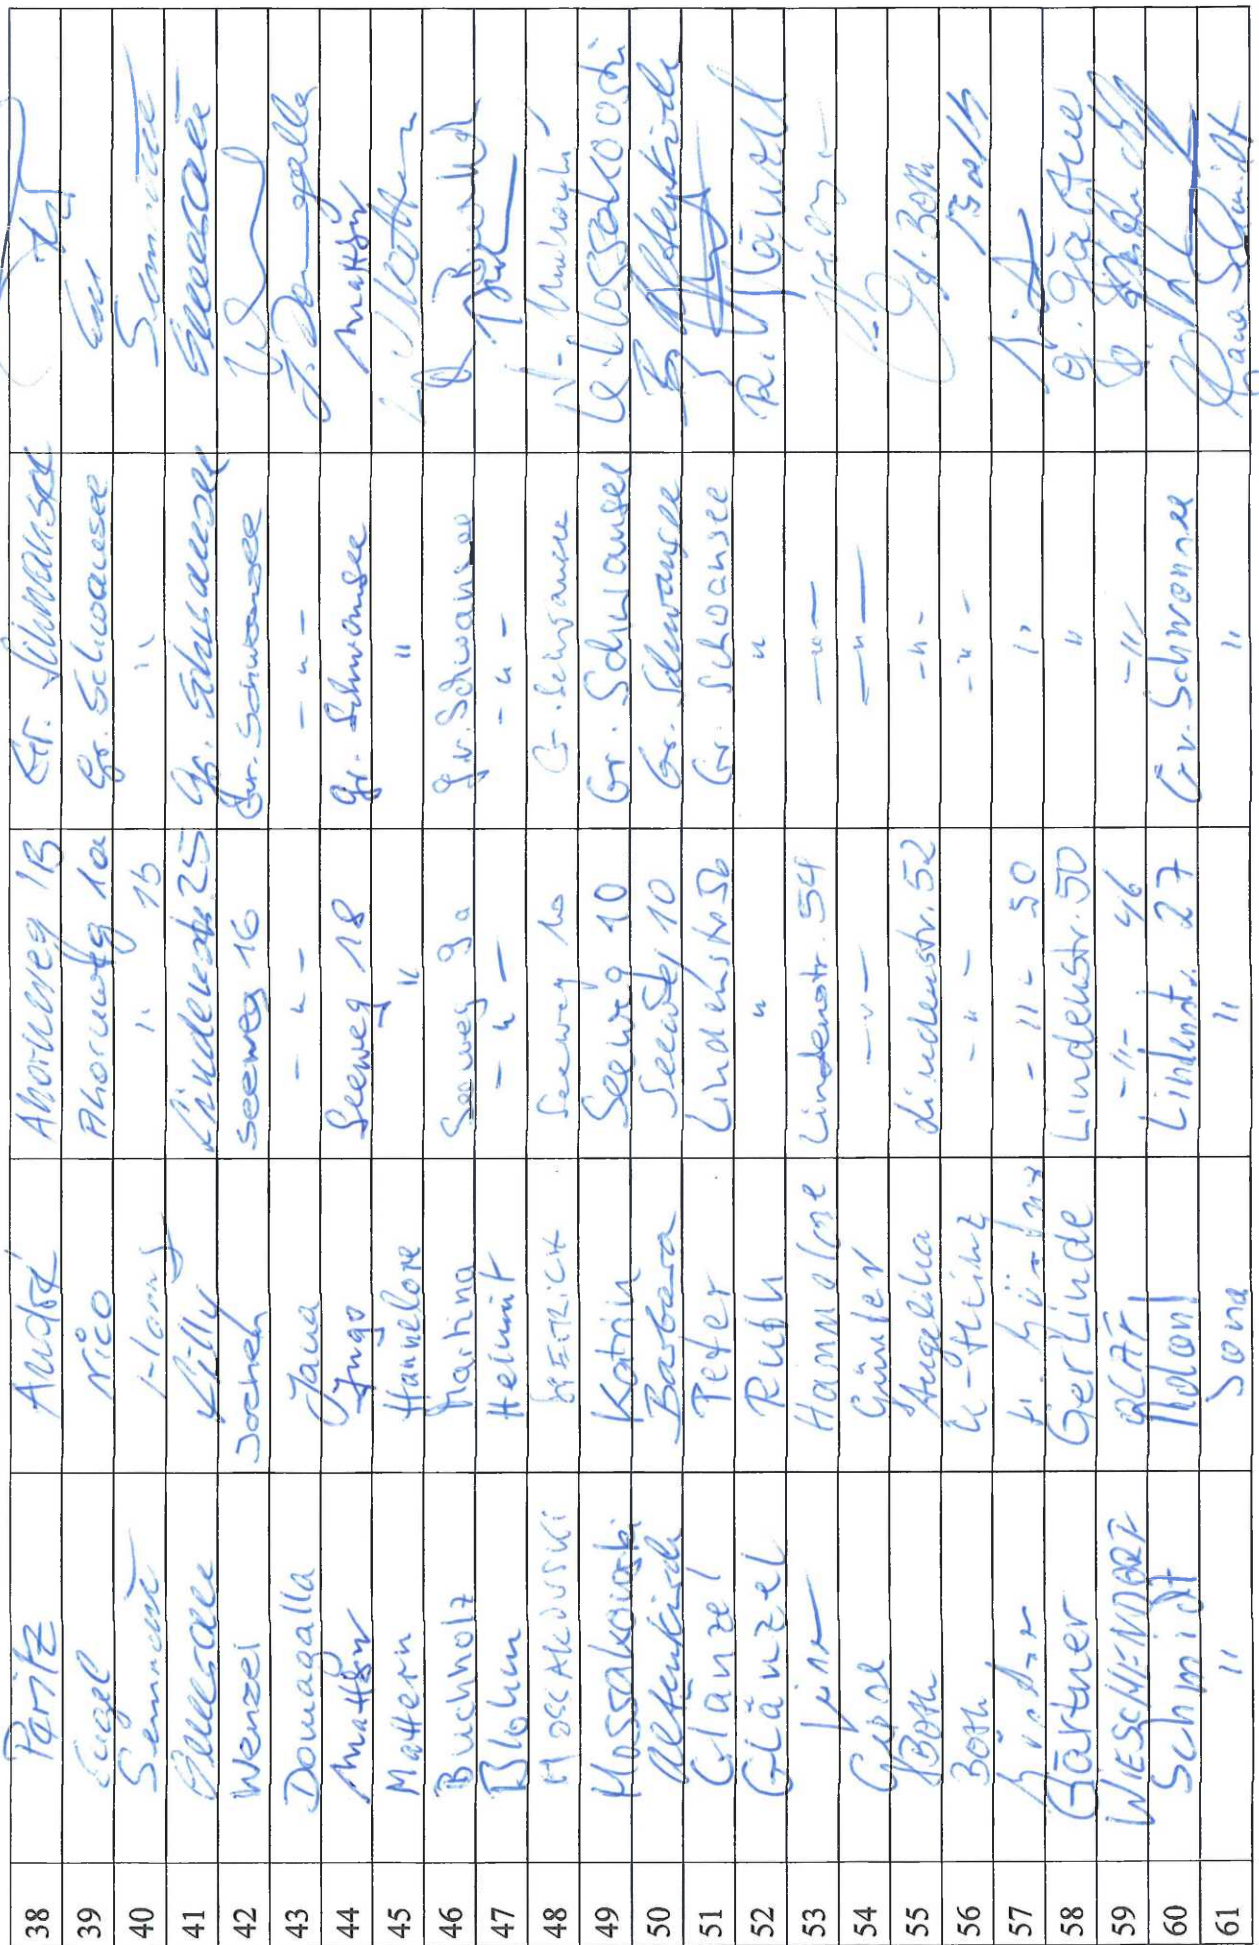 38 Paritz André Ahornweg 1B Gr. Schwansee
39 Engel Nico Ahornweg 1a Gr. Schwansee
40 " 1b "
41 Lilly Lindenstr. 25 Gr. Schwansee
42 Wenzel Jochen Seeweg 16 Gr. Schwansee
43 Domagalla Jana - " - - " - J. Domagalla
44 Ingo Seeweg 18 Gr. Schwansee
45 Mattern Hannelore " "
46 Buchholz Martina Seeweg 9a Gr. Schwansee
47 Blohm Helmut - " - - " -
48 Seeweg 10 Gr. Schwansee
49 Mossakowski Katrin Seeweg 10 Gr. Schwansee K. Mossakowski
50 Altenkirch Barbara Seeweg 10 Gr. Schwansee B. Altenkirch
51 Glänzel Peter Lindenstr. 56 Gr. Schwansee
52 Glänzel Ruth " " R. Glänzel
53 Hannelore Lindenstr. 54 - " -
54 Günter - " - - " -
55 Both Angelika Lindenstr. 52 - " -
56 Both K-Heinz - " - - " - Both
57 - " - 50 "
58 Gärtner Gerlinde Lindenstr. 50 " G. Gärtner
59 WIESCHENDORF OLAF - " - 46 - " -
60 Schmidt Lindenstr. 27 Gr. Schwansee
61 " Jana " " Jana Schmidt